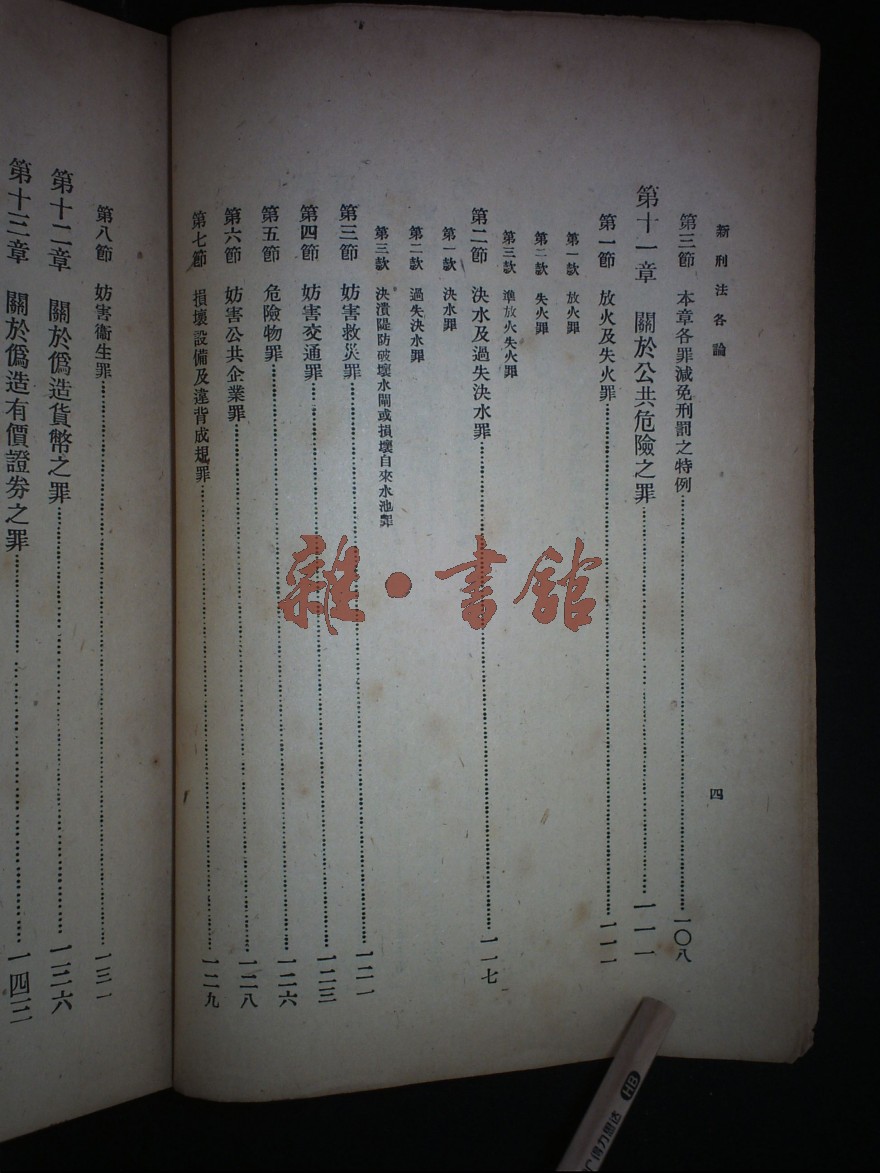 新刑法各論
四
第三節 本章各罪減免刑罰之特例……一〇八
第十一章 關於公共危險之罪……一一一
第一節 放火及失火罪……一一一
第一款 放火罪
第二款 失火罪
第三款 準放火失火罪
第二節 決水及過失決水罪……一一七
第一款 決水罪
第二款 過失決水罪
第三款 決潰隄防破壞水閘或損壞自來水池罪
第三節 妨害救災罪……一二一
第四節 妨害交通罪……一二三
第五節 危險物罪……一二六
第六節 妨害公共企業罪……一二八
第七節 損壞設備及違背成規罪……一二九
第八節 妨害衞生罪……一三一
第十二章 關於僞造貨幣之罪……一三六
第十三章 關於僞造有價證券之罪……一四三
雜·書館
HB